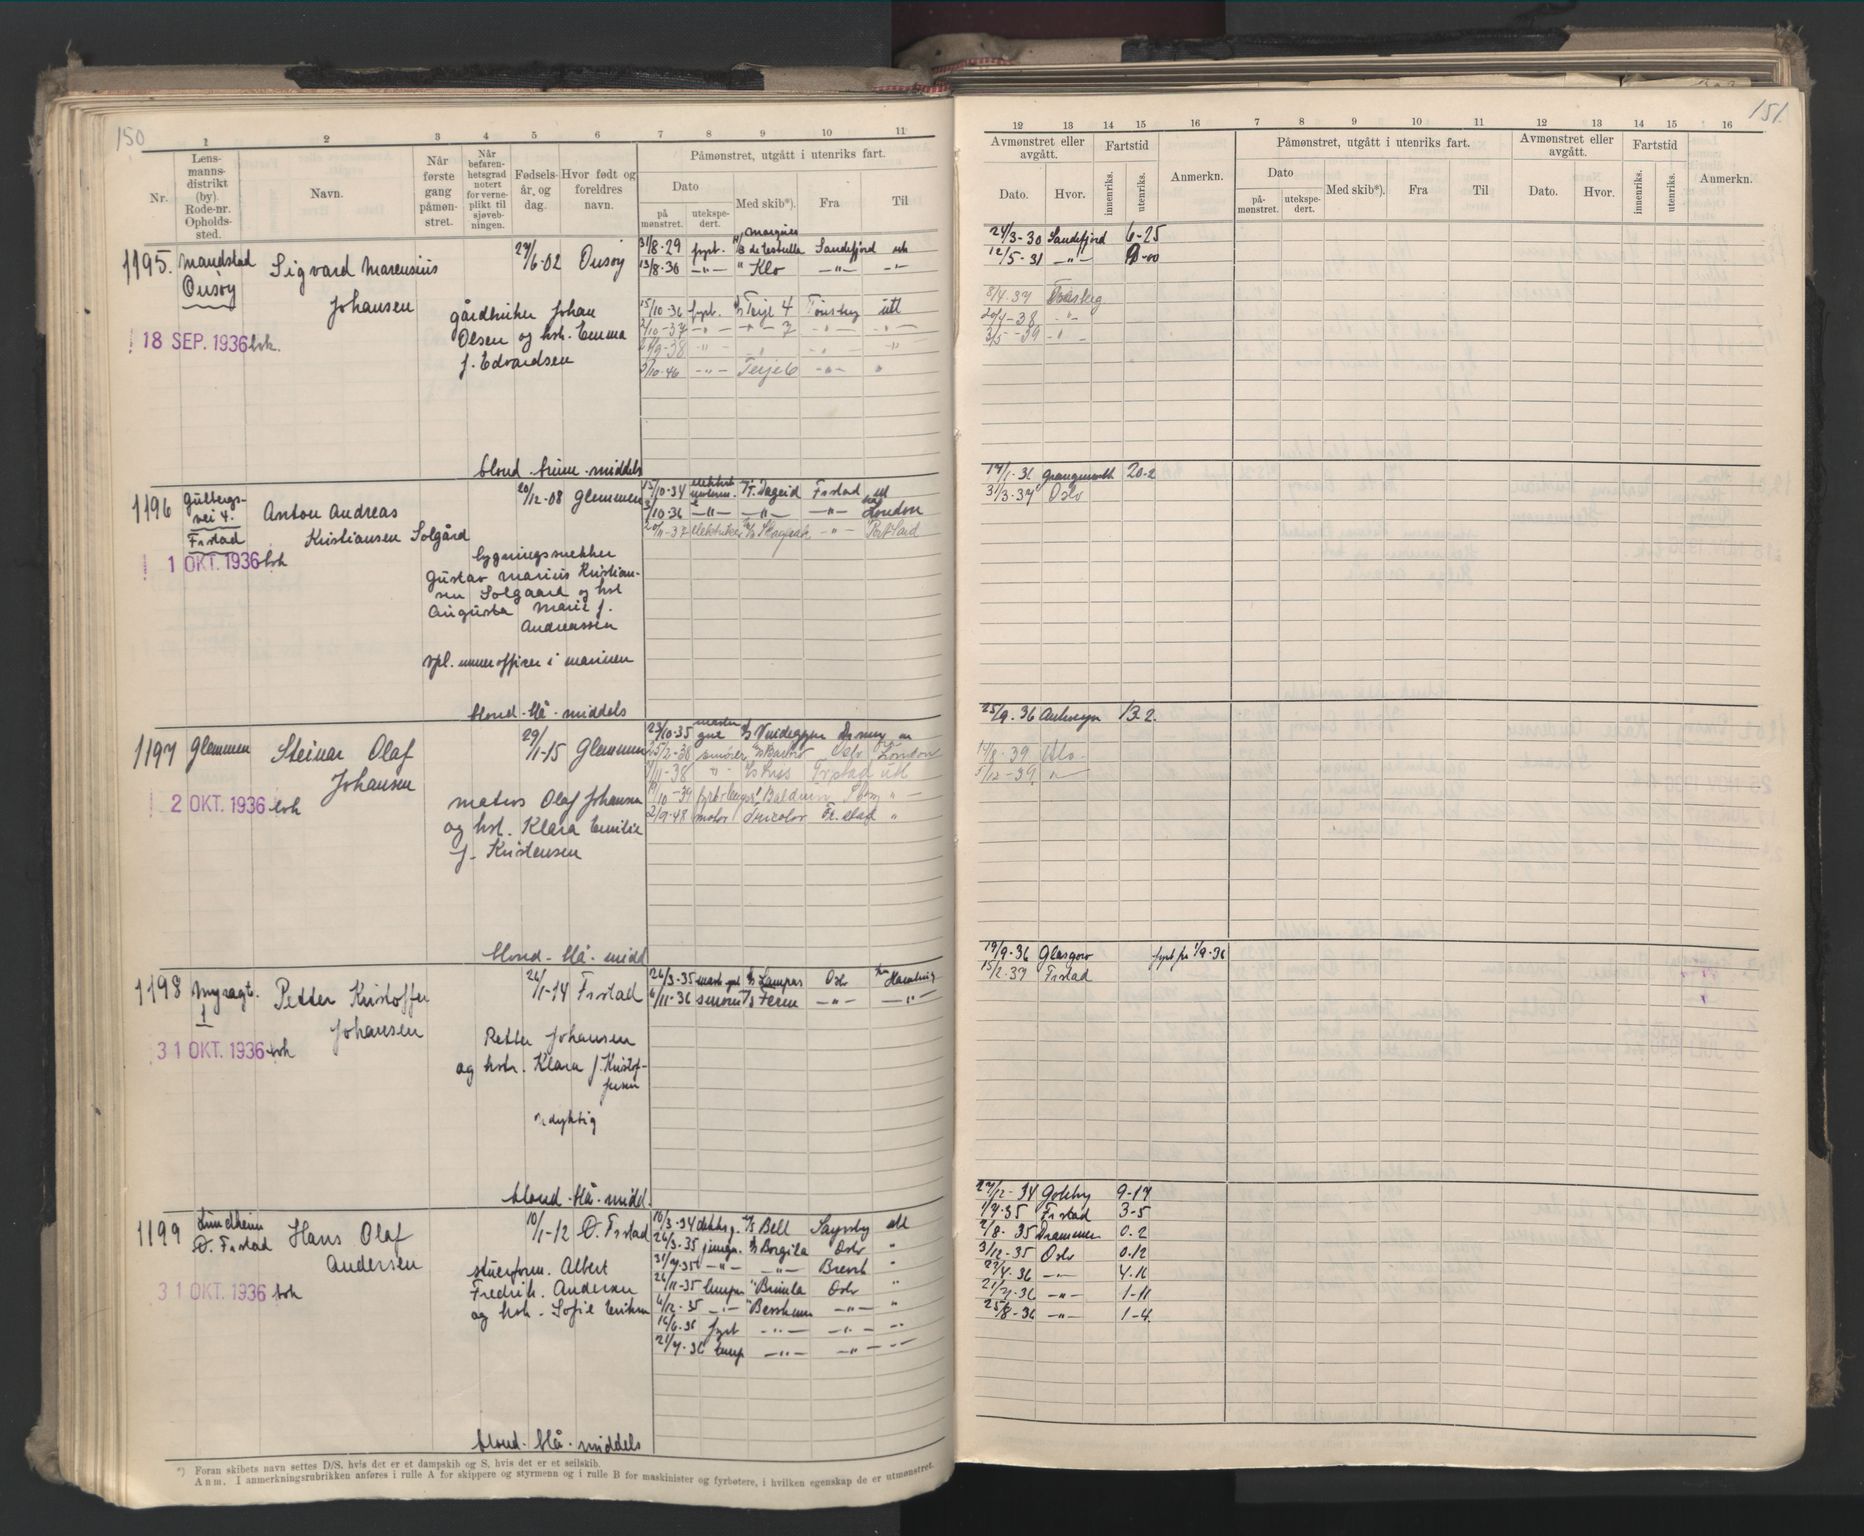 150
1 2 3 4 5 6 7 8 9 10 11
Nr.
Lens-
manns-
distrikt
(by).
Rode-nr.
Opholds-
sted.
Navn.
Når
første
gang
påmøn-
stret.
Når
befaren-
hetsgrad
notert
for verne-
plikt til
sjøveb-
ningen.
Fødsels-
år, og
dag.
Hvor født og
foreldres
navn.
Påmønstret, utgått i utenriks fart.
Dato
på
mønstret.
utekspe-
dert.
Med skib*).
Fra
Til
1195. Onsøy
Sigvard Marensius
Johansen
18 SEP. 1936
27/6-02 Onsøy
gårdbruker Johan
Olsen og hst. Emma
f. Edvardsen
31/8-29 fyrb. Sandefjord
13/8-30 -"- " Klo -"- -"-
15/10-36 fyrb. Terje 4 Tønsberg utl
2/10-37 -"- 7 -"- -"-
-"-
/10-46 -"- Terje 6 -"- "
blond - brune - middels
1196 Gulbergs-
vei 4.
Frstad
Anton Andreas
Kristiansen Solgård
1 OKT. 1936
20/12-08 Glemmen
bygningssnekker
Gustav Marius Kristian-
sen Solgaard og hst
Augusta Marie f.
Andreassen
vpl. underoffiser i marinen
15/10-34 Dageid Frstad utl
/10-36 -"- -"- -"- London
20/11-37 elektriker -"- Port Said
blond - blå - middels
1197 Glemmen Steinar Olaf
Johansen
2 OKT. 1936
29/1-15 Glemmen
matros Olaf Johansen
og hst. Klara Emilie
f. Kristensen
23/10-35
25/2-38 smører Oslo London
/11-38 " Frstad utl
/10-39 Balduin "
2/9-48 motor Tricolor Fr.stad "
blond - blå - midd
1198 Petter Kristoffer
Johansen
31 OKT. 1936
26/1-14 Frstad
Petter Johansen
og hst. Klara f. Kristof-
fersen
udyktig
26/3-35 Lampas Oslo Hamburg
6/11-36 Feren -"- -"-
blond - blå - midd.
1199 Lundheim
Ø. Frstad
Hans Olaf
Andersen
31 OKT. 1936
10/1-12 Ø. Frstad
stuerform. Albert
Fredrik Andersen
og hst. Sofie Eriksen
10/3-34 dekksg. Bell Sarpsborg utl
26/3-35 jungm. Borgila Oslo "
31/7-35 -"- -"- Brevik "
26/11-35 lemper " Brimla Oslo "
4/12-35 -"- " Bessheim -"- "
16/6-36 fyrb -"- -"- -"-
21/7-36 lemp -"- -"- -"-
blond - blå - middels
*) Foran skibets navn settes D/S, hvis det er et dampskib og S, hvis det er et seilskib.
Anm. I anmerkningsrubrikken anføres i rulle A for skippere og styrmenn og i rulle B for maskinister og fyrbøtere, i hvilken egenskap de er utmønstret.
151.
12 13 14 15 16 7 8 9 10 11 12 13 14 15 16
Avmønstret eller
avgått.
Dato.
Hvor.
Fartstid
innenriks.
utenriks.
Anmerkn.
Påmønstret, utgått i utenriks fart.
Dato
på-
mønstret.
utekspe-
dert.
Med skib*).
Fra
Til
Avmønstret eller
avgått.
Dato.
Hvor.
Fartstid
innenriks.
utenriks.
Anmerkn.
24/3-30 Sandefjord 6-25
12/5-31 -"-
8/4-37
20/4-38 -"-
3/5-39 -"-
14/1-36 Grangemouth 20-2
31/3-37 Oslo
25/9-36 Antwerpen 13-2.
14/8-39 Oslo
5/12-39 -"-
19/9-36 Glasgow fyrb fra 1/9-36
15/2-37 Frstad
27/12-34 9-17
1/7-35 Frstad 3-5
2/8-35 Drammen 0-2
3/12-35 Oslo 0-12
22/4-36 -"- 4-16
21/7-36 -"- 1-11
25/8-36 -"- 1-4.